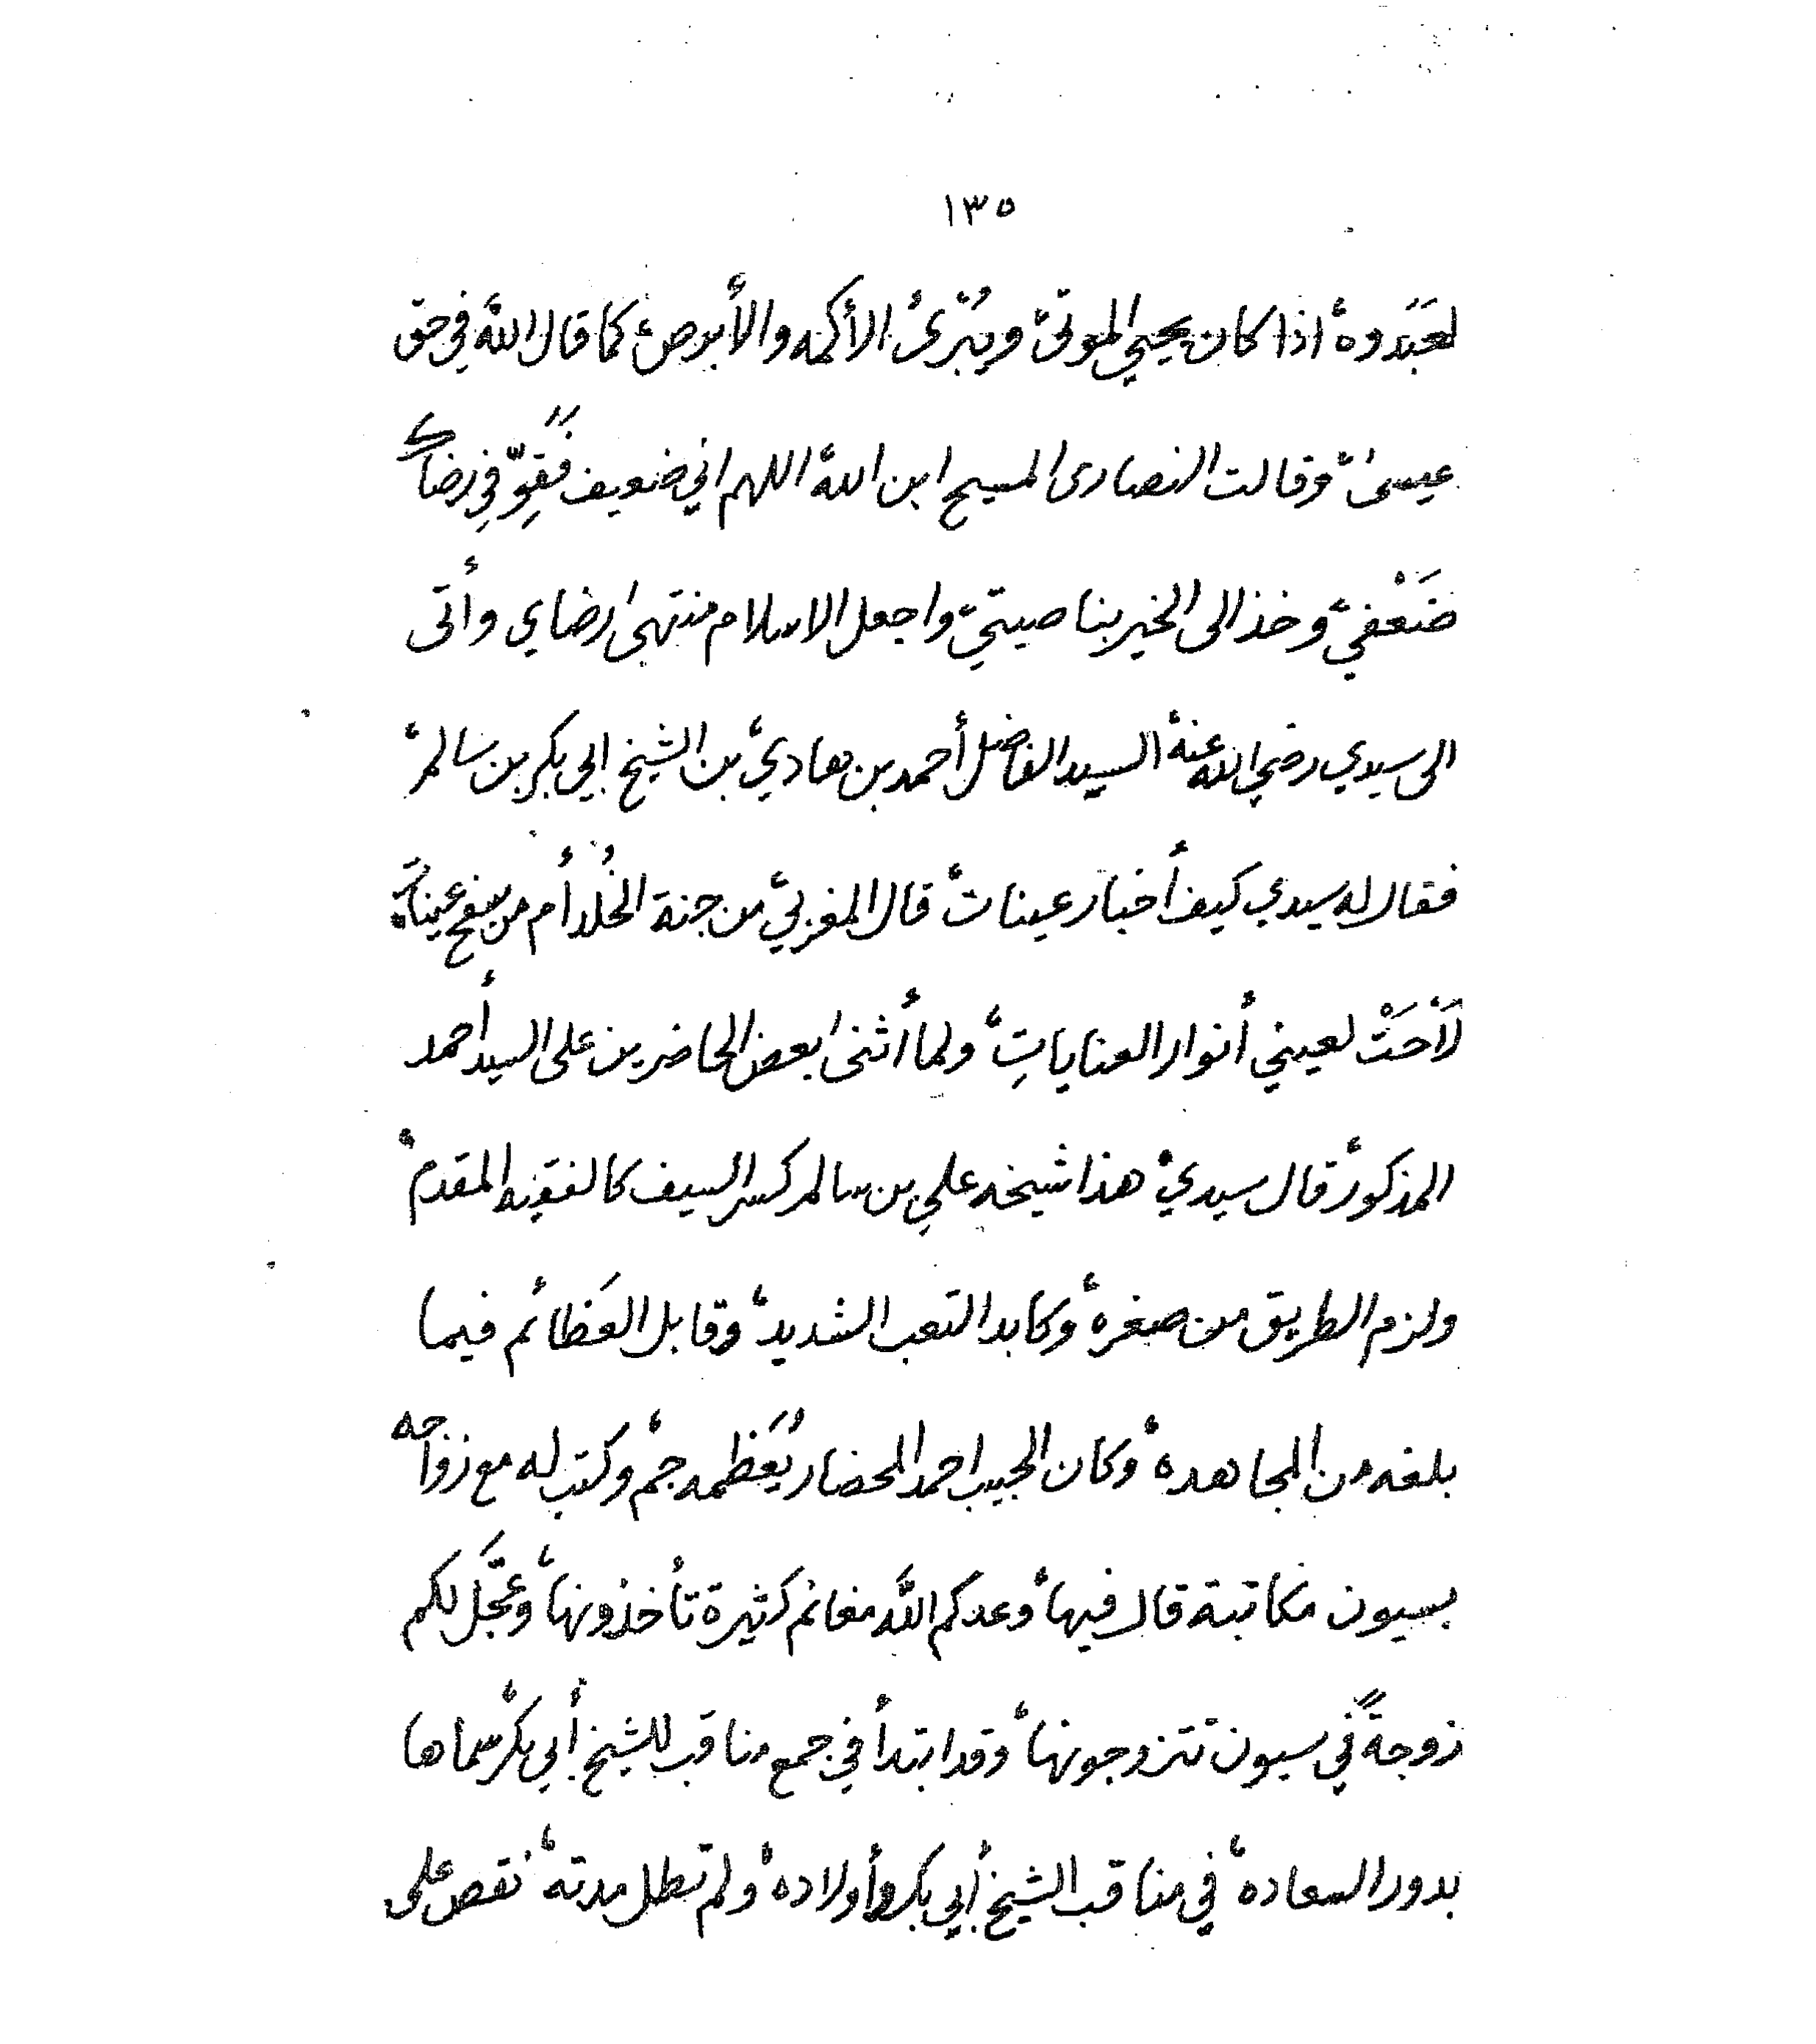 ١٣٥
لعَبَدوه، اذا كان يحيي الموتى، ويُبْرئ الأكمه والأبرص، كما قال الله في حق
عيسى، وقالت النصارى المسيح ابن الله، اللهم اني ضعيف فقوِّ في رضاك
ضَعْفي، وخذ الى الخير بناصيتي، واجعل الاسلام منتهى رضاي وأتى
الى سيدي رضي الله عنه، السيد الفاضل أحمد بن هادي، بن الشيخ ابي بكر بن سالم،
فقال له سيدي كيف أخبار عينات، قال المغربي، من جنة الخُلد أم من سفح عيناتَ،
لَاحَتْ لعيني أنوار العناياتِ، ولما أثنى بعض الحاضرين على السيد أحمد
المذكور، قال سيدي، هذا شيخه علي بن سالم كسر السيف كالفقيه المقدم،
ولزم الطريق من صغره، وكابد التعب الشديد، وقابل العَظائم فيما
بلغه من المجاهده، وكان الحبيب احمد المحضار يُعَظمه جم، وكتب له مع زواجه
بسيون مكاتبة قال فيها، وعدكم الله مغانم كثيرة تأخذونها، وعَجَّل لكم
زوجةً في سيون تتزوجونها، وقد ابتدأ في جمع مناقب للشيخ أبي بكر، سماها
بدور السعاده، في مناقب الشيخ أبي بكر وأولاده، ولم تطل مدته، نقص على